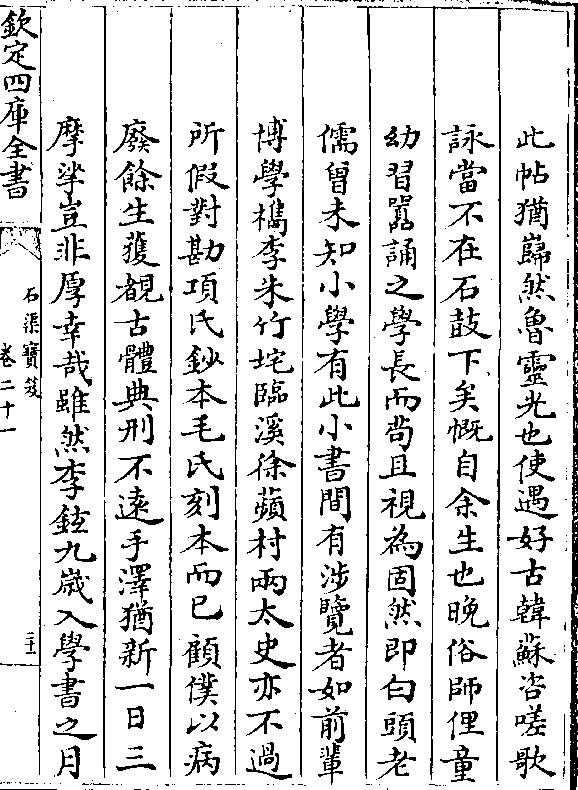 此帖猶巋然魯靈光也使遇好古韓蘇咨嗟歌
詠當不在石鼓下矣慨自余生也晚俗師俚童
幼習囂誦之學長而茍且視為固然即白頭老
儒曾未知小學有此小書間有涉覽者如前輩
博學檇李朱竹垞臨溪徐蘋村兩太史亦不過
所假對勘項氏鈔本毛氏刻本而已顧僕以病
廢餘生獲覩古體典刑不遠手澤猶新一日三
摩挲豈非厚幸哉雖然李鉉九歲入學書之月
欽定四庫全書
石渠寶笈
卷二十一